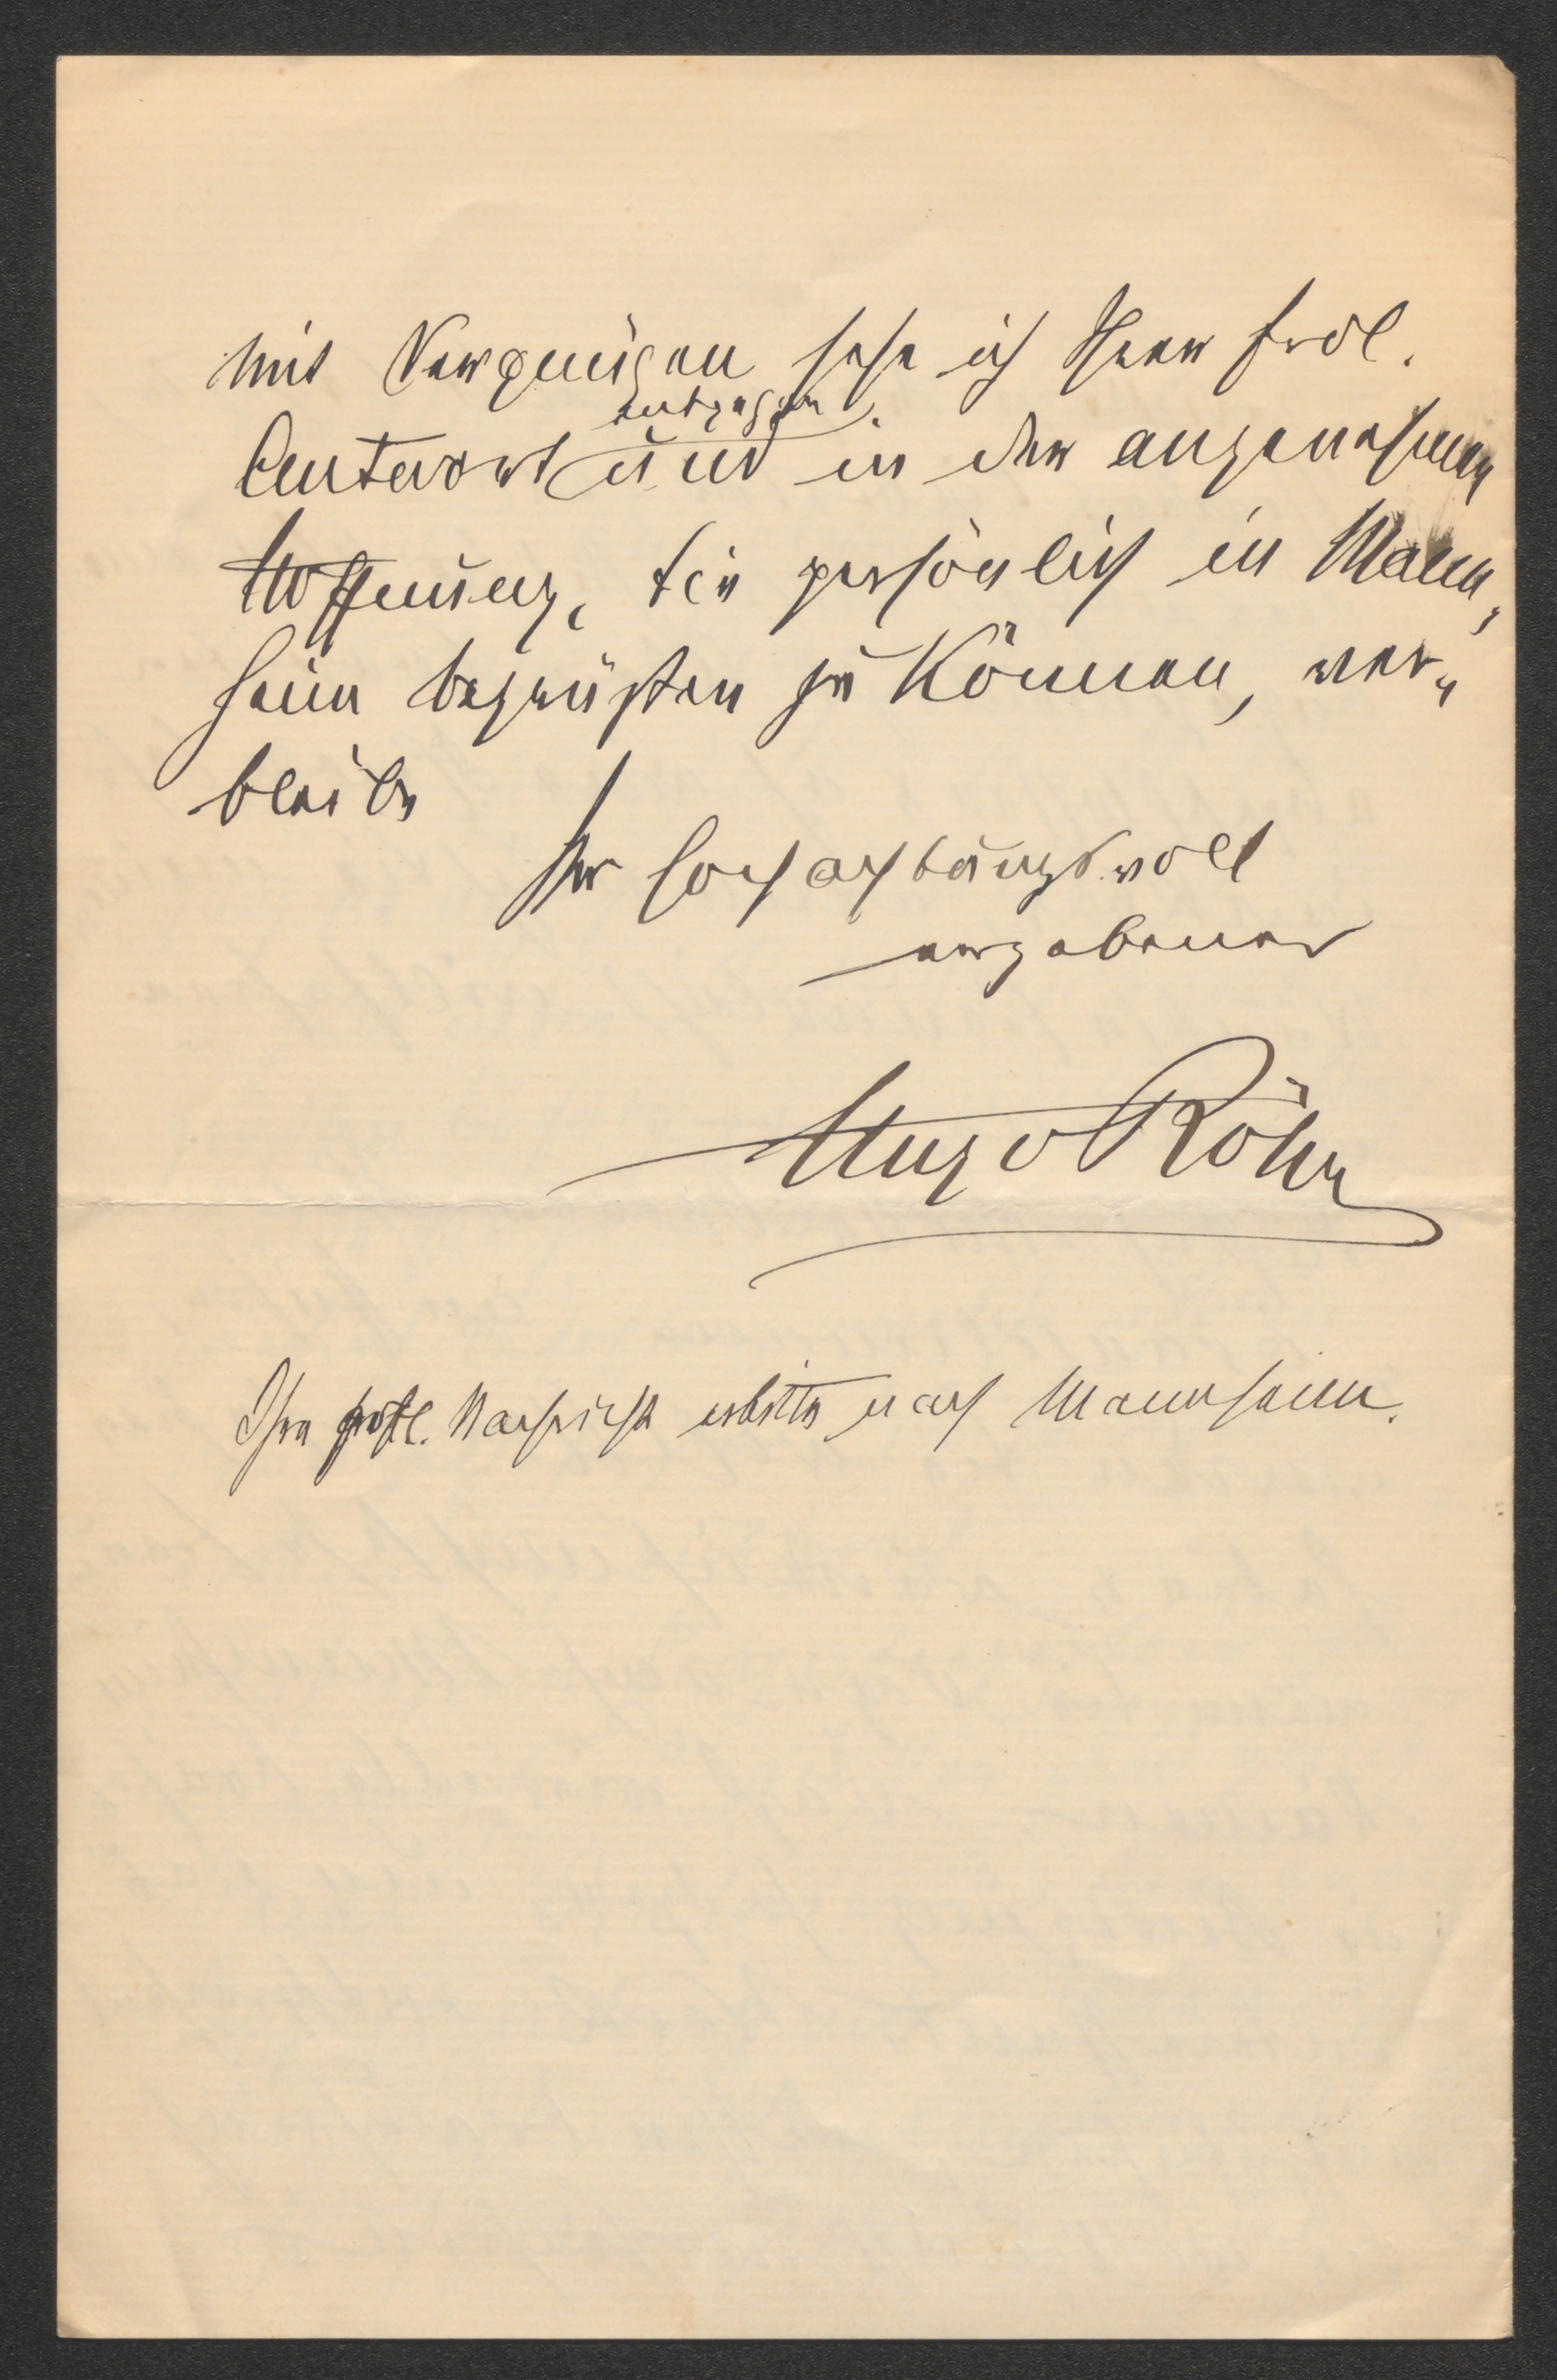 Mit Vergnügen sehe ich Ihrer frdl.
entgegen
Antwort und in der angenehmen
Hoffnung, Sie persönlich in Mann„
heim begrüßen zu können, ver„
bleibe
Ihr hochachtungsvoll
ergebener
Hugo Röhr
Ihre Nachricht erbitte nach Mannheim.